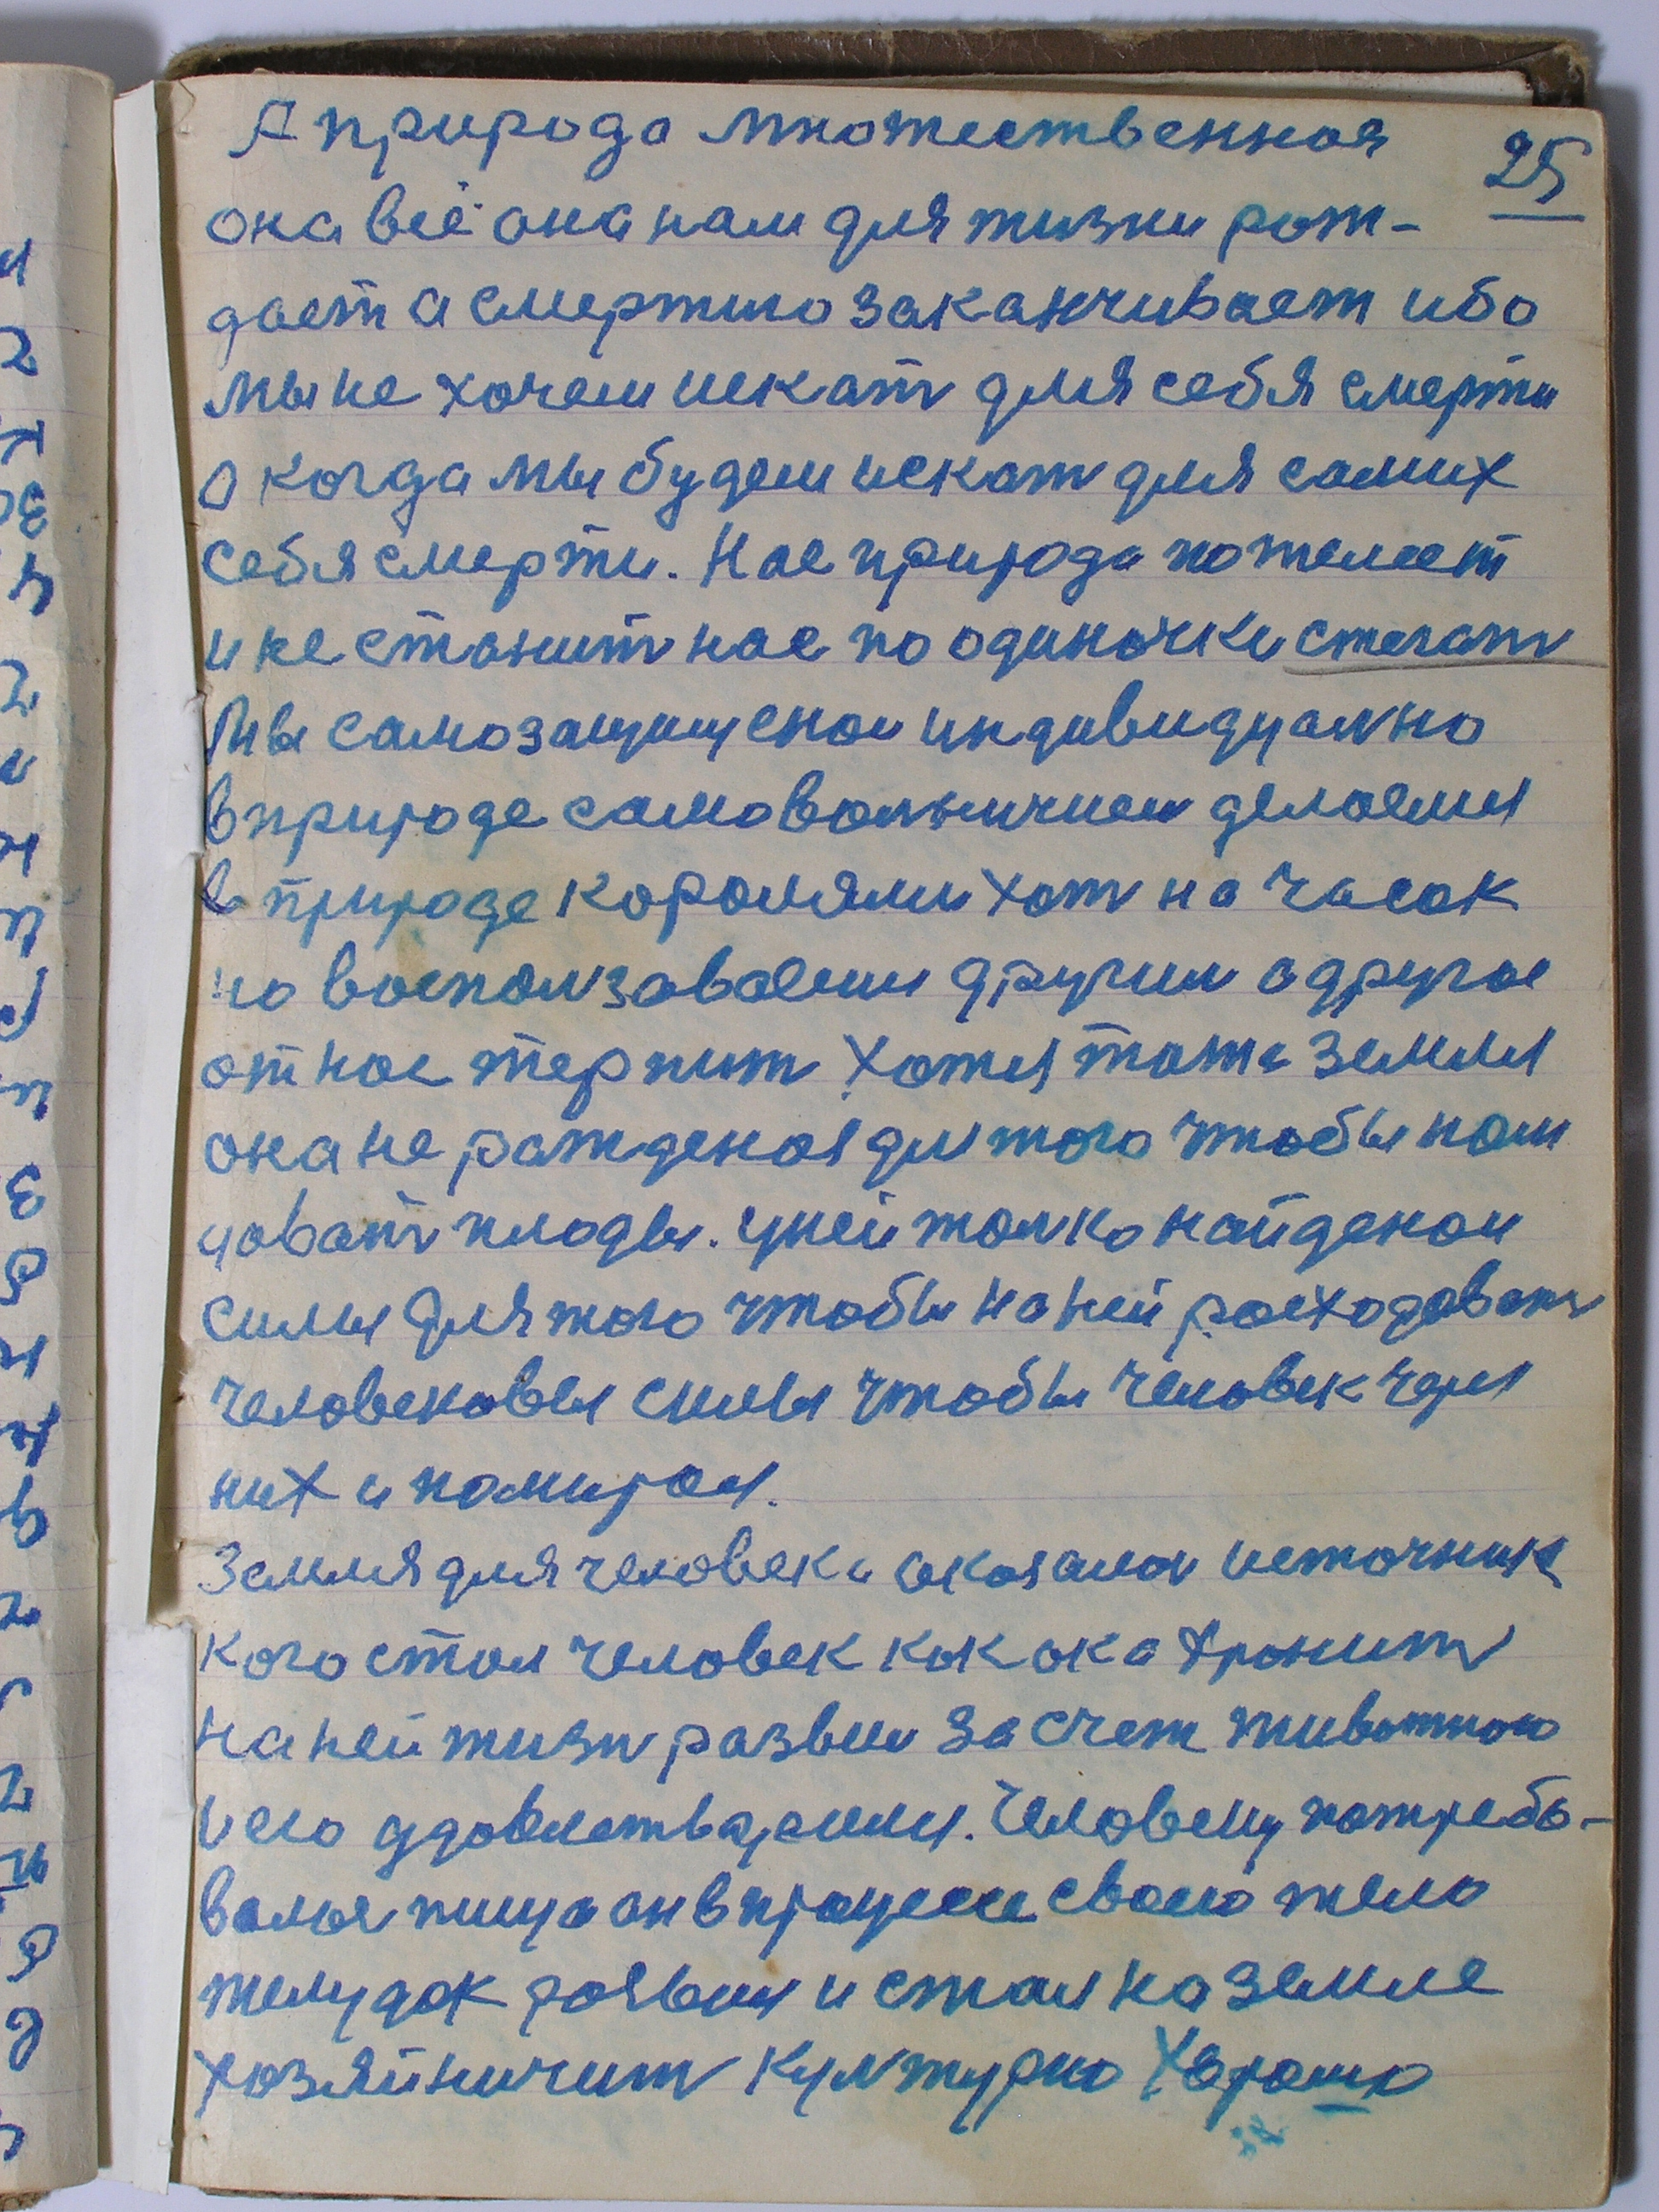 А природа множественная
25
она всё она нам для жизни рож-
дает а смертию заканчивает ибо
мы не хочем искат для себя смерти
а когда мы будем искат для самих
себя смерти. Нас природа пожелеет
и не станит нас по одиночки стегат
Мы самозащищеном индивидуално
в природе самоволничием делаемся
в природе королями хот на часок
но воспользоваемся другим а другое
от нас терпит хотя таже земля
она не рожденая для того чтобы нам
довать плоды. у ней толко найденои
силы для того чтобы на ней расходоват
человековы силы чтобы человек через
них и помирал.
Земля для человека оказалас источник
кого стал человек как ока хранит
на ней жизн развил за счет животного
и его удовлетварения. Человеку потребо-
валас пища он в процессе своего тела
желудок розвил и стал на земле
хозяйничит културно Хорошо